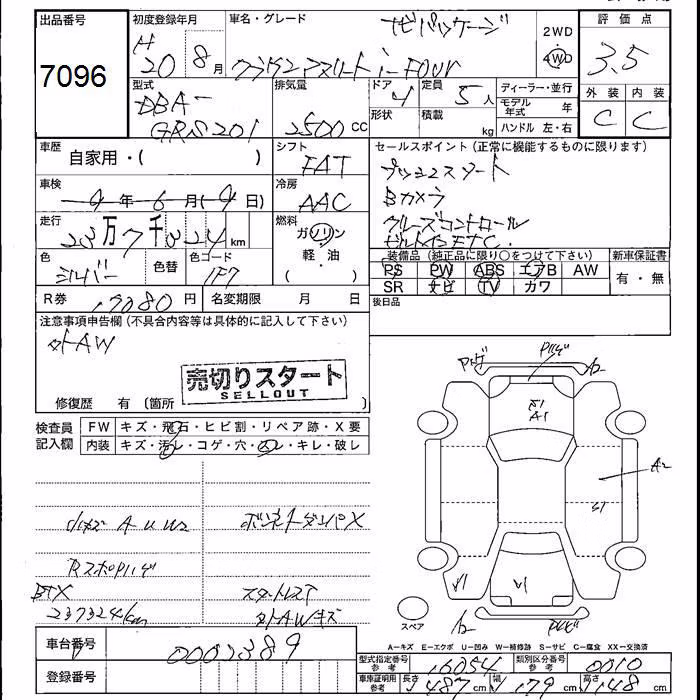 出品番号
7096
初度登録年月
H 20年 8月
車名・グレード
ナビパッケージ
クラウンアスリート i-Four
2WD
4WD
評価点
3.5
外装 内装
C C
型式
DBA-
GRS201
排気量
2500 CC
ドア 4
形状
定員 5人
積載 kg
ディーラー・並行
モデル年式 年
ハンドル 左・右
車歴
自家用・( )
シフト
FAT
セールスポイント(正常に機能するものに限ります)
プッシュスタート
Bカメラ
クルーズコントロール
ビルトインETC
車検
9年 6月(9日)
冷房
AAC
走行
23万7千324km
燃料
ガソリン
軽・油
( )
色
シルバー
色替
色コード
1F7
装備品(純正品に限り○をつけて下さい)
PS PW ABS エアB AW
SR ナビ TV カワ
新車保証書
有・無
R券 円
名変期限 月 日
後日品
注意事項申告欄(不具合内容等は具体的に記入して下さい)
外AW
売切りスタート
SELLOUT
修復歴 有(箇所
検査員記入欄
FW キズ・飛石・ヒビ割・リペア跡・X要
内装 キズ・汚レ・コゲ・穴・スレ・キレ・破レ
小キズ A U W2
ボンネットダンパX
237324km
外AWキズ
A2
A1
A2
S1
A2
スペア
A-キズ E-エクボ U-凹み W-補修跡 S-サビ C-腐食 XX-交換済
車台番号
0003389
登録番号
型式指定番号 参考 16054
類別区分番号 参考 0010
車庫証明用 参考 長さ 487cm 幅 179cm 高さ 148cm